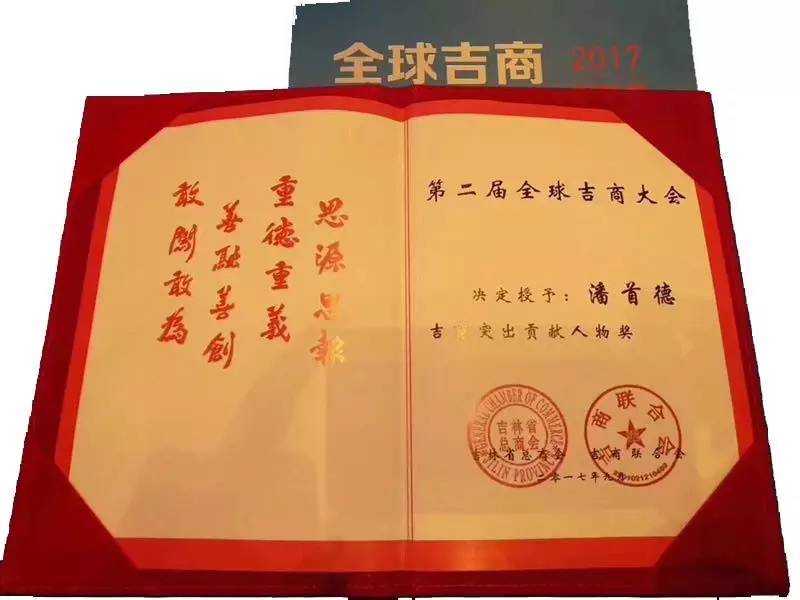 全球吉商
2017
思源思報
重德重義
善融善創
敢闖敢為
第二届全球吉商大会
决定授予：潘首德
吉商突出贡献人物奖
GENERAL CHAMBER OF COMMERCE
吉林省
总商会
JILIN PROVINCE
吉商联合会
吉林省总商会 吉商联合会
二零一七年九月